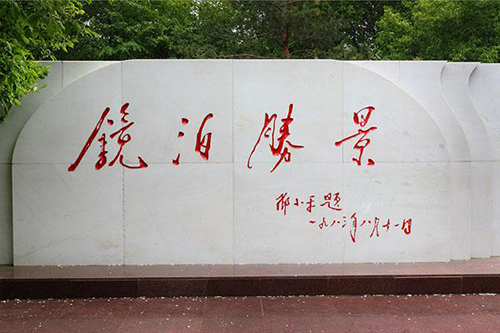 镜泊胜景
邓小平题
一九八三年八月十一日